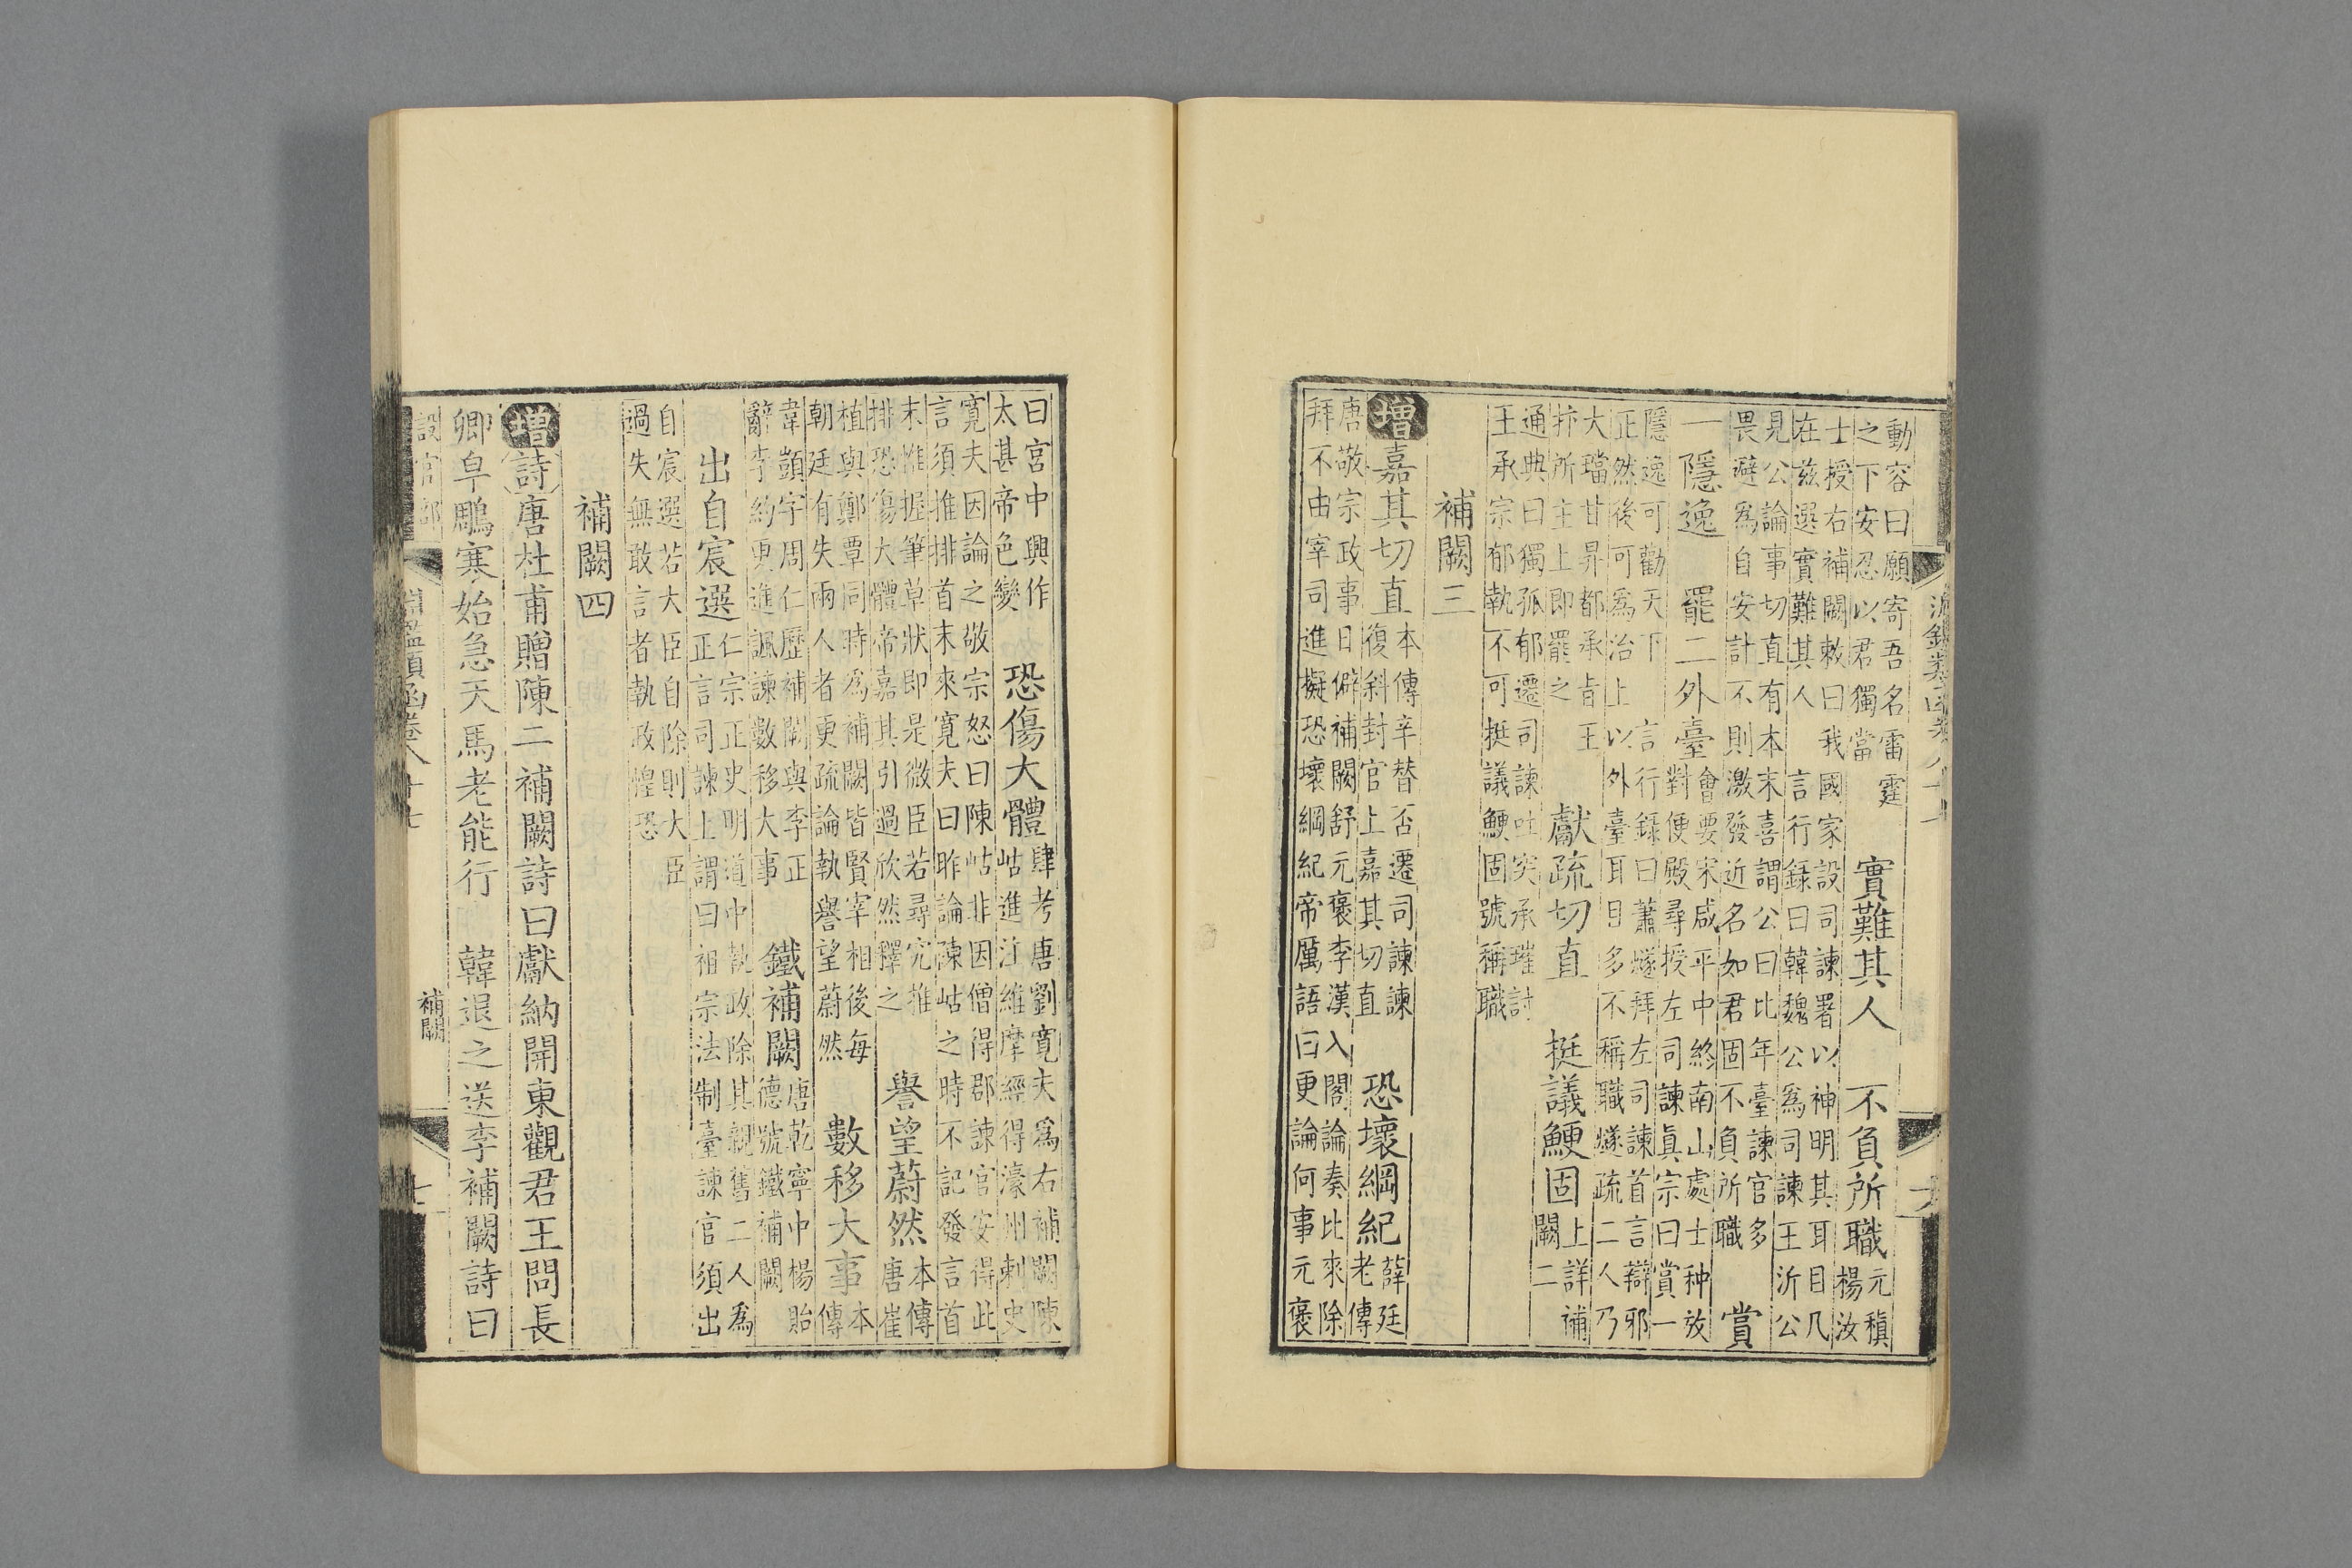 動容曰願寄吾名雷霆
之下安忍以君獨當
實難其人　不負所職
元稹
楊汝
士授右補闕敕曰我國家設司諫署以神明其耳目凡
在兹選實難其人　言行録曰韓魏公為司諫王沂公
見公論事切直有本末喜謂公曰比年臺諫官多
畏避為自安計不則激發近名如君固不負所職
賞
一隱逸　罷二外臺
會要宋咸平中終南山處士种放
對便殿尋授左司諫眞宗曰賞一
隱逸可勸天下　言行録曰蕭燧拜左司諫首言辯邪
正然後可為治上以外臺耳目多不稱職燧疏二人乃
大璫甘昇都承旨王
抃所主上即罷之
獻疏切直　挺議鯁固
上詳補
闕二
通典曰獨孤郁遷司諫吐突承璀討
王承宗郁執不可挺議鯁固號稱職
補闕三
增嘉其切直
本傳辛替否遷司諫諫
復斜封官上嘉其切直
恐壞綱紀
薛廷
老傳
唐敬宗政事日僻補闕舒元褒李漢入閣論奏比來除
拜不由宰司進擬恐壞綱紀帝厲語曰更論何事元褒
曰宮中興作
太甚帝色變
恐傷大體
肆考唐劉寛夫為右補闕陳
岵進注維摩經得濠州刺史
寛夫因論之敬宗怒曰陳岵非因僧得郡諫官安得此
言須推排首末來寛夫曰昨論陳岵之時不記發言首
末惟握筆草狀即是微臣若尋究推
排恐傷大體帝嘉其引過欣然釋之
譽望蔚然
本傳
唐崔
植與鄭覃同時為補闕皆賢宰相後每
朝廷有失兩人者更疏論執譽望蔚然
數移大事
本
傳
韋顗字周仁歷補闕與李正
辭李約更進諷諫數移大事
鐵補闕
唐乾寧中楊貽
德號鐵補闕
出自宸選
仁宗正史明道中執政除其親舊二人為
正言司諫上謂曰祖宗法制臺諫官須出
自宸選若大臣自除則大臣
過失無敢言者執政惶恐
補闕四
增詩唐杜甫贈陳二補闕詩曰獻納開東觀君王問長
卿皁鵰寒始急天馬老能行　韓退之送李補闕詩曰
設官部　淵鑑類函卷八十七　補闕